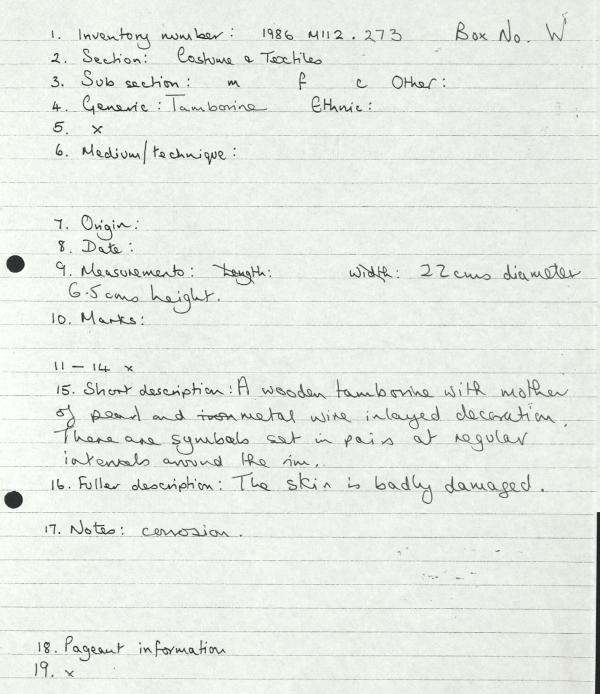 1. Inventory number: 1986 M112.273 Box No. W
2. Section: Costume & Textiles
3. Sub section: m f c Other:
4. Generic: Tamborine Ethnic:
5. x
6. Medium/technique:
7. Origin:
8. Date:
9. Measurements: Length: width: 22cms diameter
6.5cms height.
10. Marks:
11 - 14 x
15. Short description: A wooden tamborine with mother
of pearl and iron metal wire inlayed decoration.
There are symbals set in pairs at regular
intervals around the rim.
16. Fuller description: The skin is badly damaged.
17. Notes: corrosion.
18. Pageant information
19. x